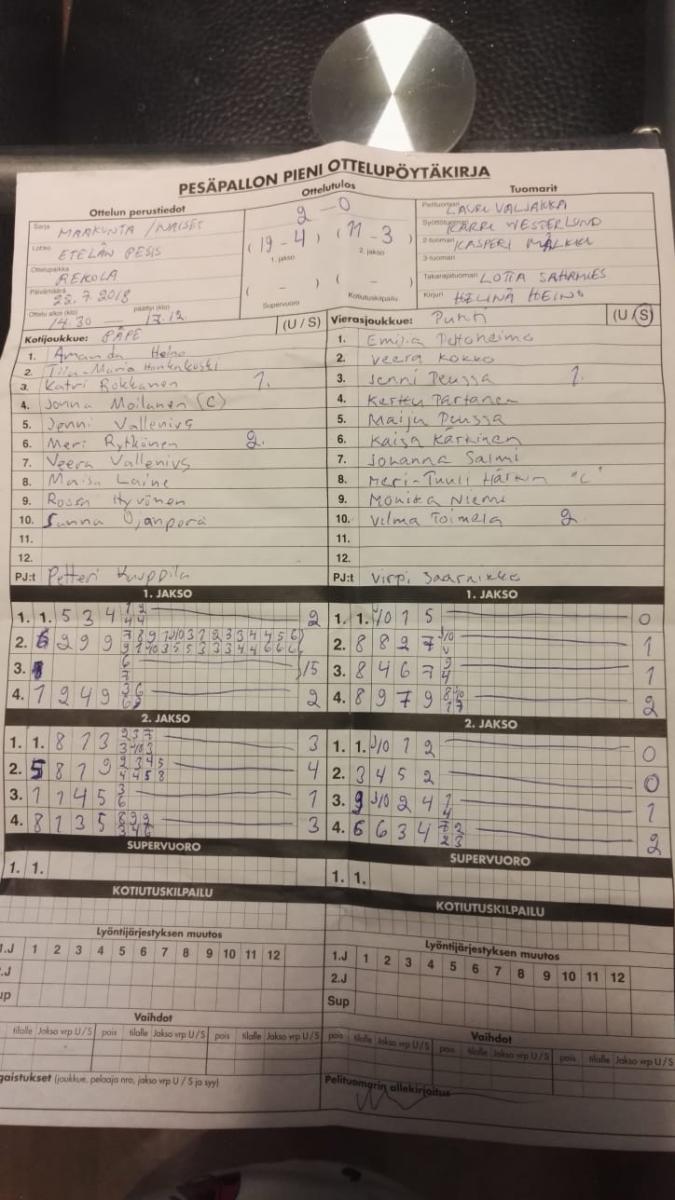 PESÄPALLON PIENI OTTELUPÖYTÄKIRJA
Ottelun perustiedot Ottelutulos Tuomarit
2-0
Sarja MAAKUNTA / NAISET
Lohko ETELÄN PESIS
Ottelupaikka REKOLA
Päivämäärä 22.7.2018
Ottelu alkoi (klo) 14.30 päättyi (klo) 17.12
(19 - 4) (11 - 3)
1. jakso 2. jakso
( - ) ( - )
Supervuoro Kotiutuskilpailu
Pelituomari LAURI VALJAKKA
Syöttötuomari KARRI WESTERLUND
2-tuomari KASPERI MÄLKKI
3-tuomari
Takarajatuomari LOTTA SAHAMIES
Kirjuri HELINÄ HEINO
Kotijoukkue: PÄPE (U / S)
1. Amanda Heino
2. Tiia-Maria
3. Katri Rokkanen 1.
4. Jonna Moilanen (C)
5. Jenni Vallenius
6. Meri Rytkönen 2.
7. Veera Vallenius
8. Maisa Laine
9. Roosa Hyvönen
10. Sanna Ojanperä
11.
12.
PJ:t Petteri Kurppila
Vierasjoukkue: Puhti (U / S)
1. Emilia
2. Veera Kokko
3. Jenni Peussa 1.
4. Kerttu Partanen
5. Maiju Peussa
6. Kaisa Kärkinen
7. Johanna Salmi
8. Meri-Tuuli "C"
9. Monika Niemi
10. Vilma Toimela 2
11.
12.
PJ:t Virpi Saarnikko
1. JAKSO
1. 1. 5 3 4 2
2. 6 2 9 9 15
3.
4. 1 2 4 9 2
1. JAKSO
1. 1. J10 1 5 0
2. 8 8 2 7 1
3. 8 4 6 7 1
4. 8 9 7 9 2
2. JAKSO
1. 1. 8 1 3 3
2. 5 8 1 9 4
3. 1 1 4 5 1
4. 8 1 3 5 3
2. JAKSO
1. 1. J10 1 2 0
2. 3 4 5 2 0
3. 9 J10 2 4 1
4. 6 6 3 4 2
SUPERVUORO
1. 1.
SUPERVUORO
1. 1.
KOTIUTUSKILPAILU
KOTIUTUSKILPAILU
Lyöntijärjestyksen muutos
1.J 1 2 3 4 5 6 7 8 9 10 11 12
2.J
Sup
Lyöntijärjestyksen muutos
1.J 1 2 3 4 5 6 7 8 9 10 11 12
2.J
Sup
Vaihdot
tilalle Jakso vrp U / S pois tilalle Jakso vrp U / S pois tilalle Jakso vrp U / S
Vaihdot
pois tilalle Jakso vrp U / S pois tilalle Jakso vrp U / S pois tilalle Jakso vrp U / S
gaistukset (joukkue, pelaaja nro, jakso vrp U / S ja syy)
Pelituomarin allekirjoitus